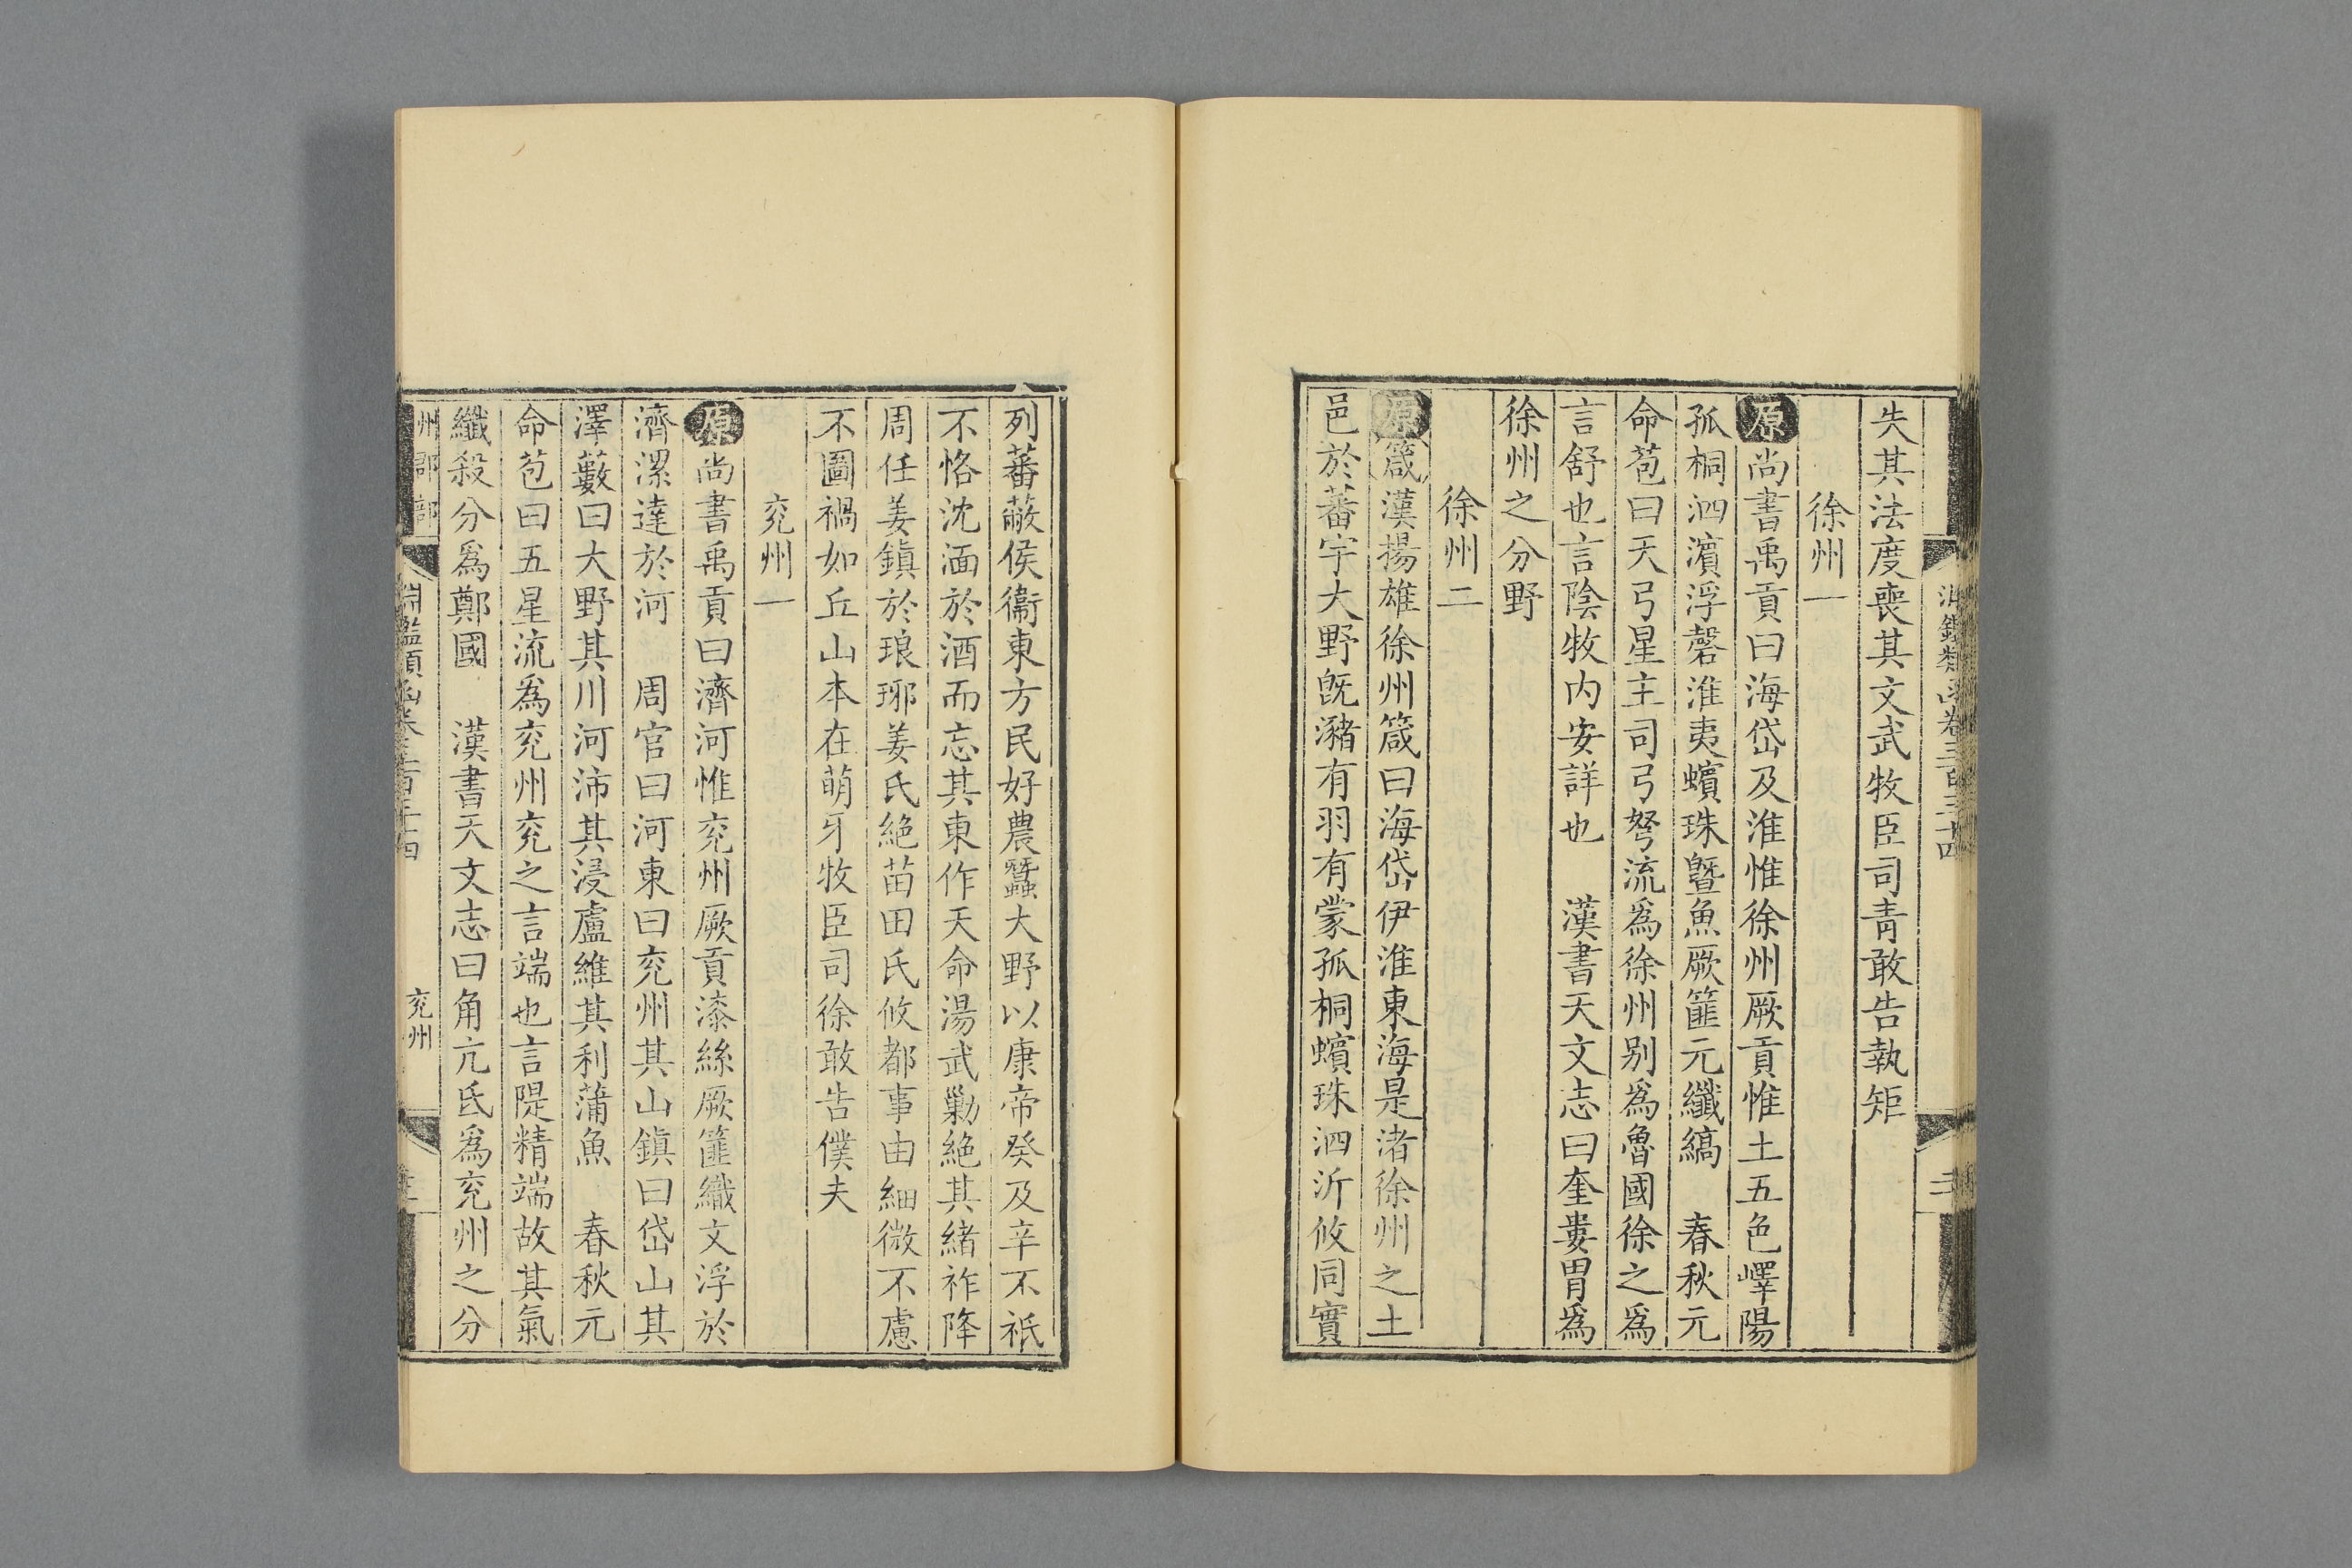 淵鑑類函卷三百三十四
失其法度喪其文武牧臣司青敢告執矩
徐州一
原尚書禹貢曰海岱及淮惟徐州厥貢惟土五色嶧陽
孤桐泗濱浮磬淮夷蠙珠曁魚厥篚元纖縞　春秋元
命苞曰天弓星主司弓弩流爲徐州别爲魯國徐之爲
言舒也言陰牧内安詳也　漢書天文志曰奎婁胃爲
徐州之分野
徐州二
原箴漢揚雄徐州箴曰海岱伊淮東海是渚徐州之土
邑於蕃宇大野旣瀦有羽有蒙孤桐蠙珠泗沂攸同實
列蕃蔽侯衞東方民好農蠶大野以康帝癸及辛不祗
不恪沈湎於酒而忘其東作天命湯武勦絶其緒祚降
周任姜鎮於琅琊姜氏絶苗田氏攸都事由細微不慮
不圖禍如丘山本在萌牙牧臣司徐敢告僕夫
兖州一
原尚書禹貢曰濟河惟兖州厥貢漆絲厥篚織文浮於
濟漯達於河　周官曰河東曰兖州其山鎮曰岱山其
澤藪曰大野其川河沛其浸盧維其利蒲魚　春秋元
命苞曰五星流爲兖州兖之言端也言隄精端故其氣
纖殺分爲鄭國　漢書天文志曰角亢氐爲兖州之分
州郡部　淵鑑類函卷三百三十四　兖州